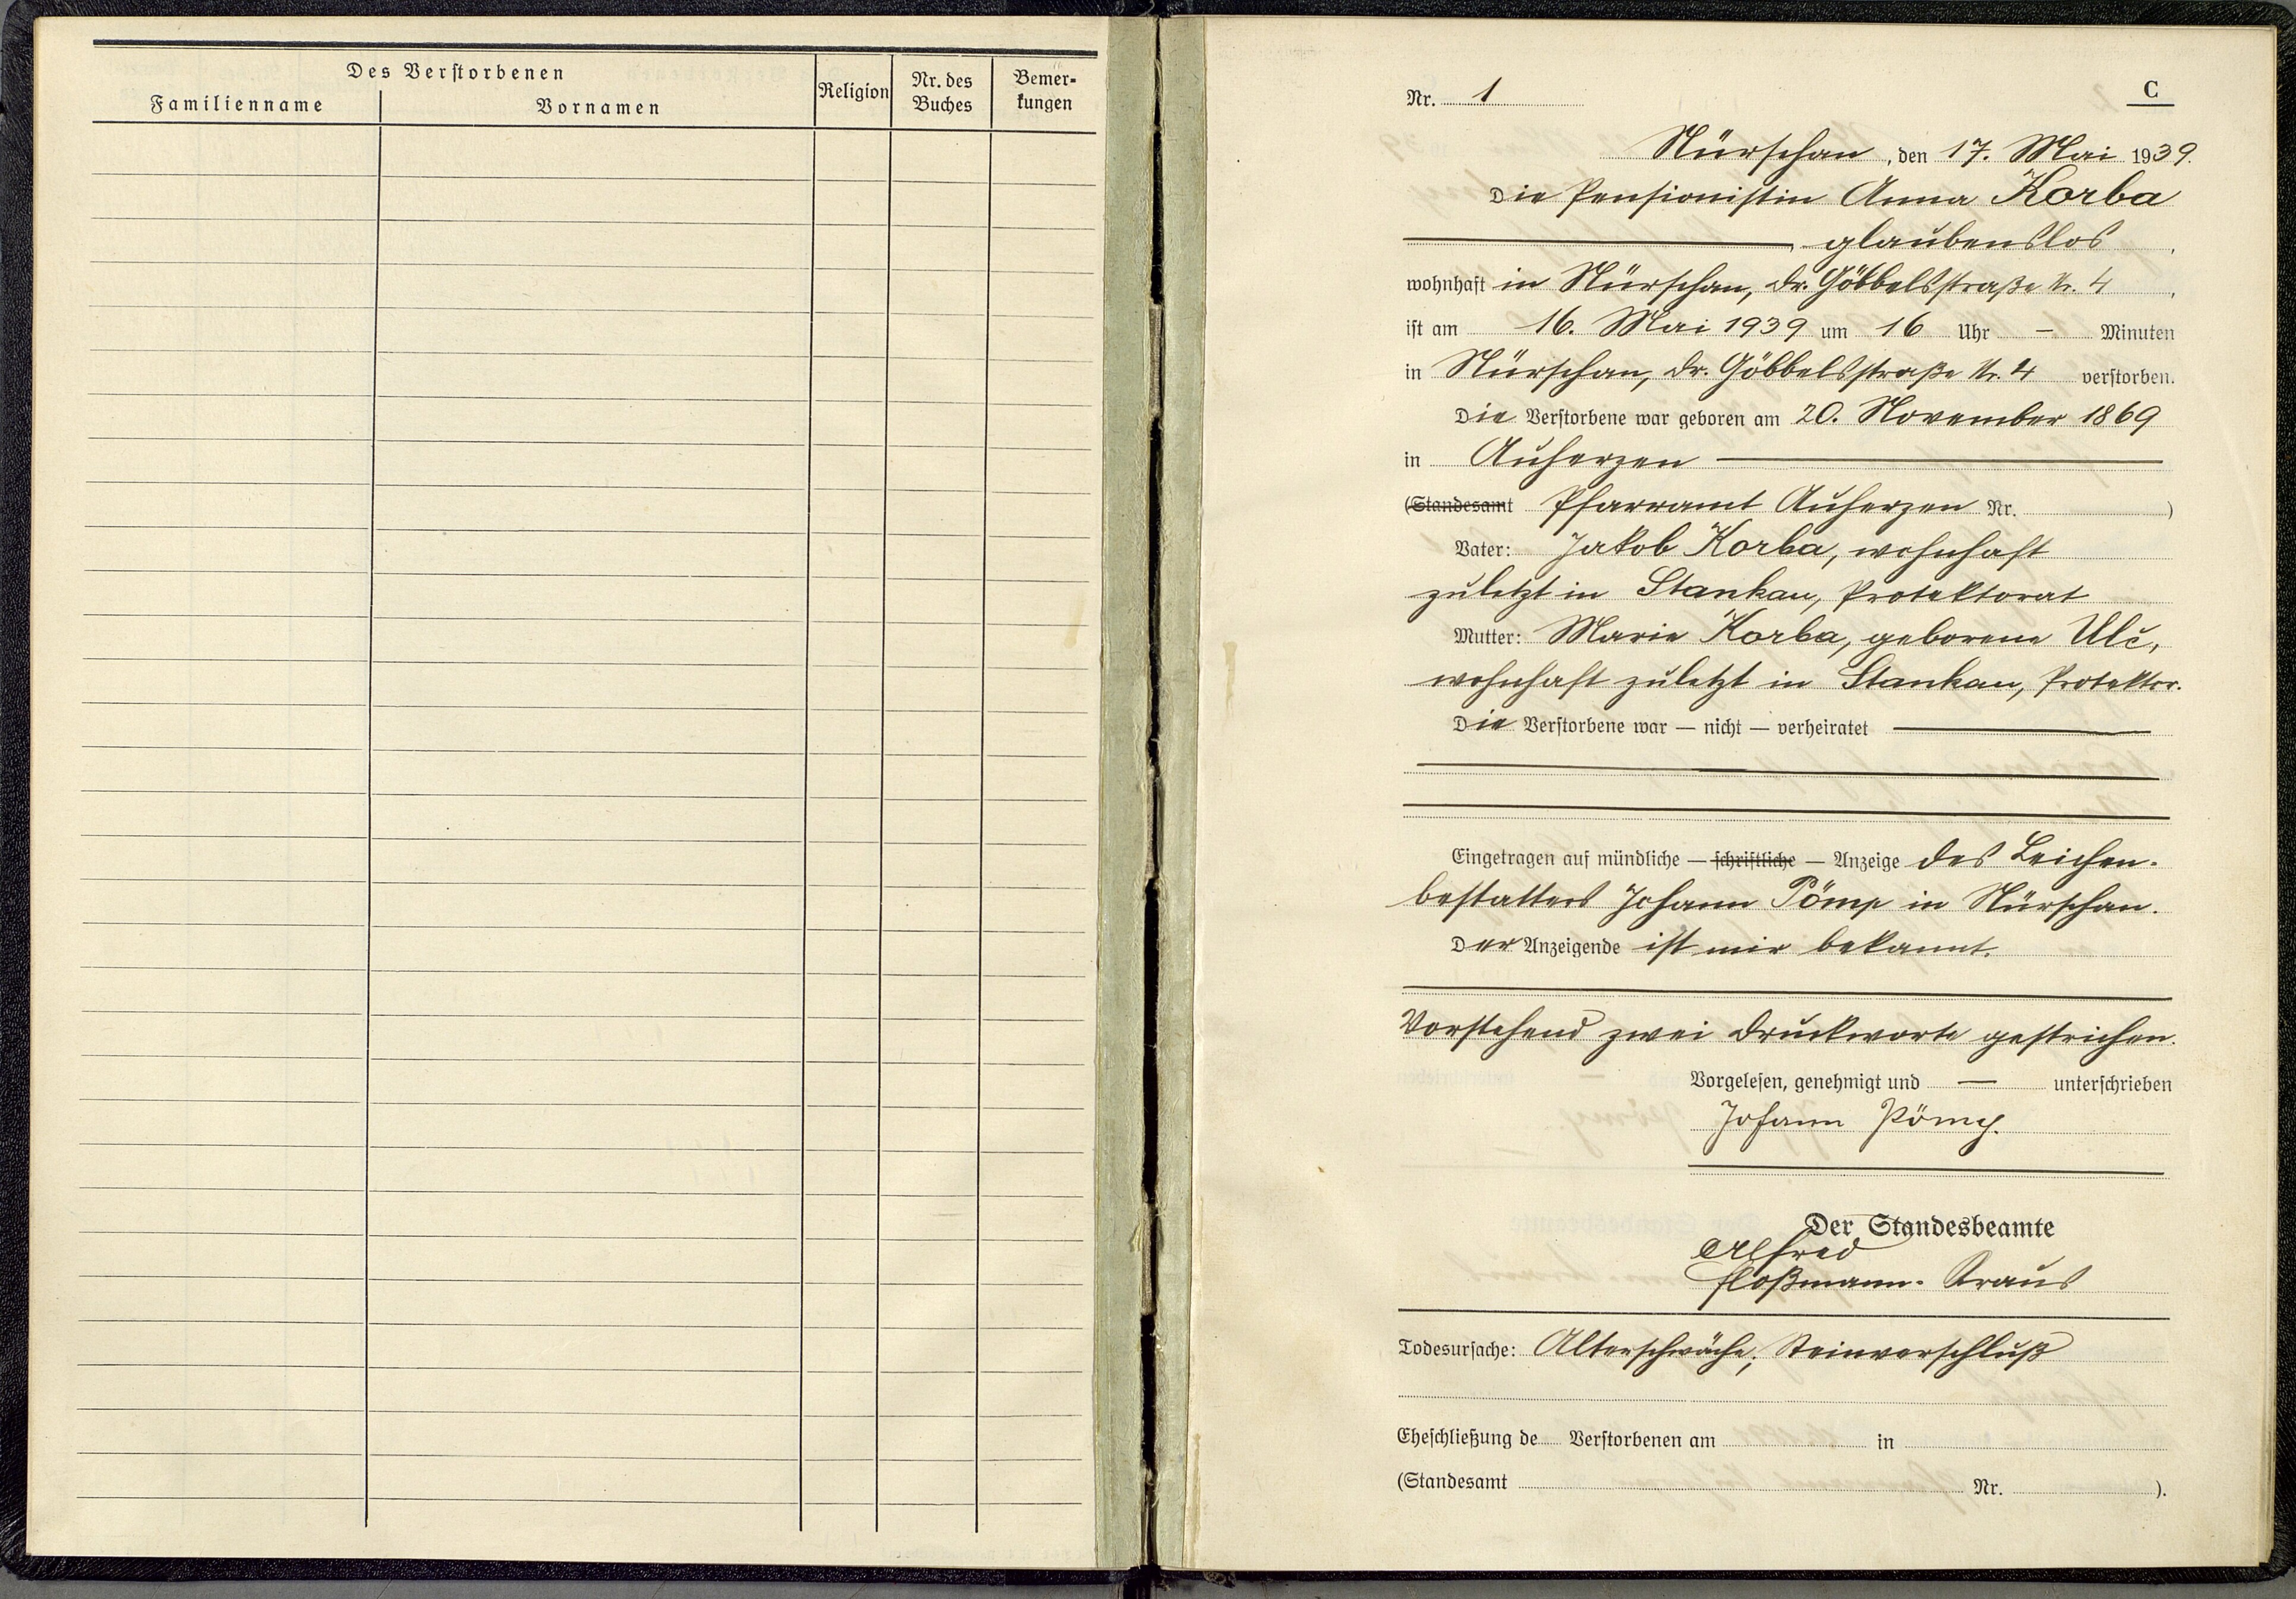 Des Verstorbenen
Familienname
Vornamen
Religion
Nr. des
Buches
Bemer-
kungen
C
Nr. 1
Nürschan, den 17. Mai 1939.
Die Pensionistin Anna Korba
, glaubenslos,
wohnhaft in Nürschan, Dr. Göbbelsstraße Nr. 4,
ist am 16. Mai 1939 um 16 Uhr — Minuten
in Nürschan, Dr. Göbbelsstraße Nr. 4 verstorben.
Die Verstorbene war geboren am 20. November 1869
in Auherzen
(Standesamt Pfarramt Auherzen Nr. )
Vater: Jakob Korba, wohnhaft
zuletzt in Stankau, Protektorat
Mutter: Marie Korba, geborene Ulč,
wohnhaft zuletzt in Stankau, Protektor.
Die Verstorbene war — nicht — verheiratet
Eingetragen auf mündliche — schriftliche — Anzeige des Leichen-
bestatters Johann Pömp in Nürschan.
Der Anzeigende ist mir bekannt.
Vorstehend zwei Druckworte gestrichen.
Vorgelesen, genehmigt und — unterschrieben
Johann Pömp.
Der Standesbeamte
Alfred
Floßmann-Kraus
Todesursache: Alterschwäche; Steinverschluß
Eheschließung de Verstorbenen am in
(Standesamt Nr. ).